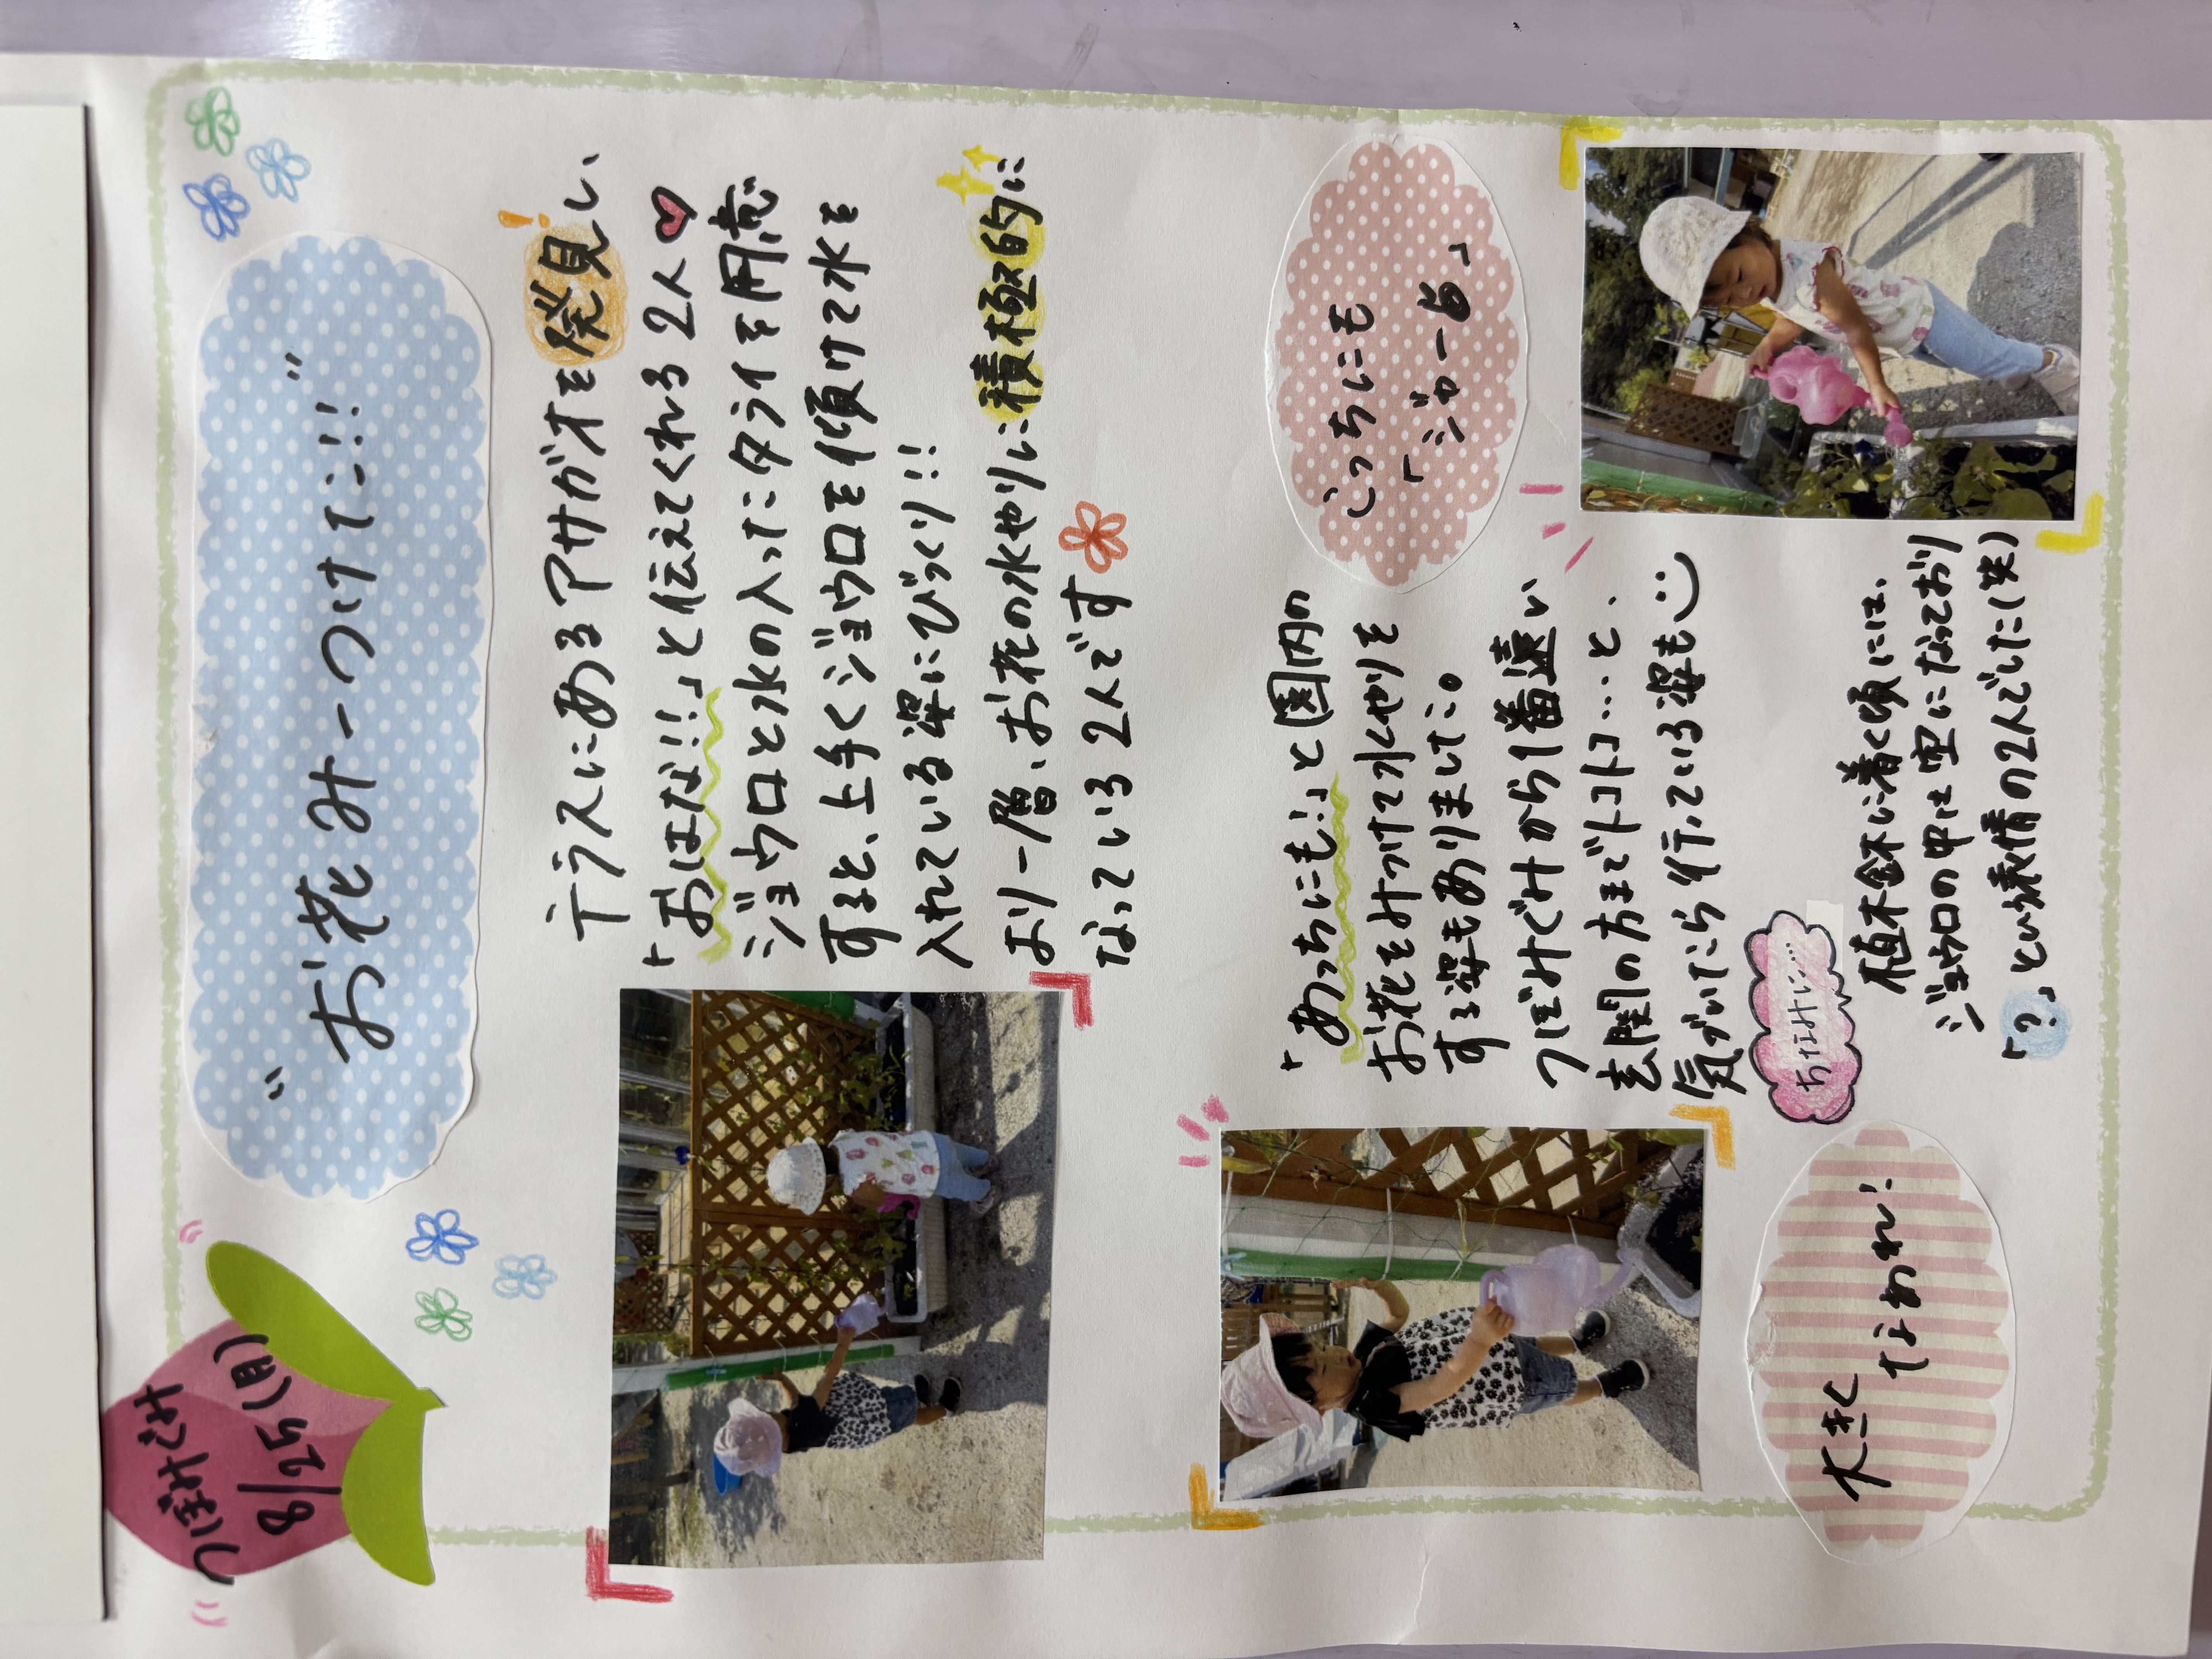 つぼみぐみ
8/25(月)
"お花みーつけた!!"
テラスにあるアサガオを発見し、
「おはな!!」と伝えてくれる2人
ジョウロと水の入ったタライを用意
すると、上手くジョウロを傾けて水を
入れている姿にびっくり!!
より一層、お花の水やりに積極的に
なっている2人です
こっちにも
「ジャー」
「あっちにも!」と園内の
お花をみつけて水やりを
する姿もありました。
つぼみぐみから1番遠い
玄関の方までトコトコ…と、
気づいたら行っている姿も
ちなみに…
植木鉢に着く頃には、
ジョウロの中は空になっており
「?」という表情の2人でした(笑)
大きく
なあれ!